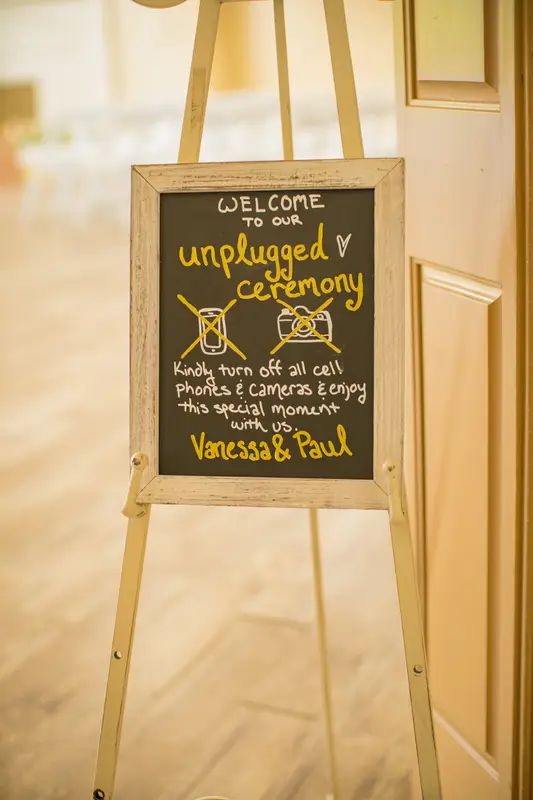 WELCOME
TO OUR
unplugged
ceremony
Kindly turn off all cell
phones & cameras & enjoy
this special moment
with us.
Vanessa & Paul